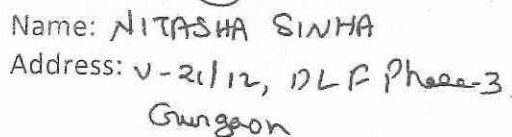 Name: NITASHA SINHA
Address: V-21/12, DLF Phase-3,
Gurgaon